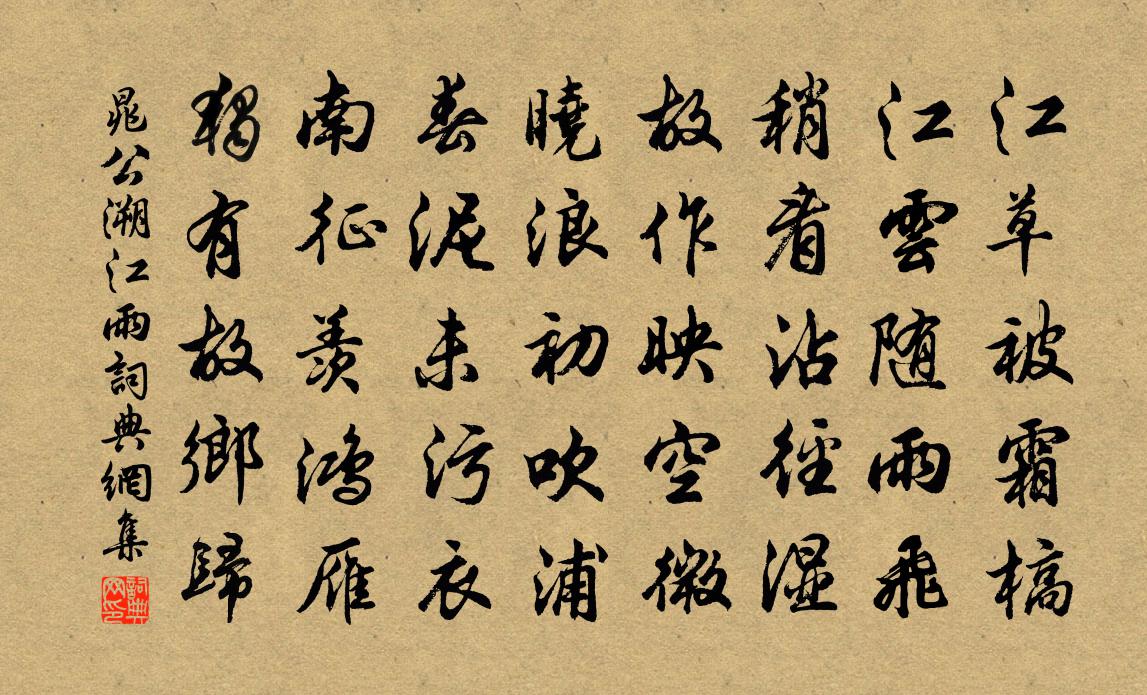 江草被霜槁
江雲随雨飛
稍看沾徑濕
故作映空微
曉浪初吹浦
春泥未污衣
南征羨鴻雁
獨有故鄉歸
晁公溯江雨詞典網集
詞典网印